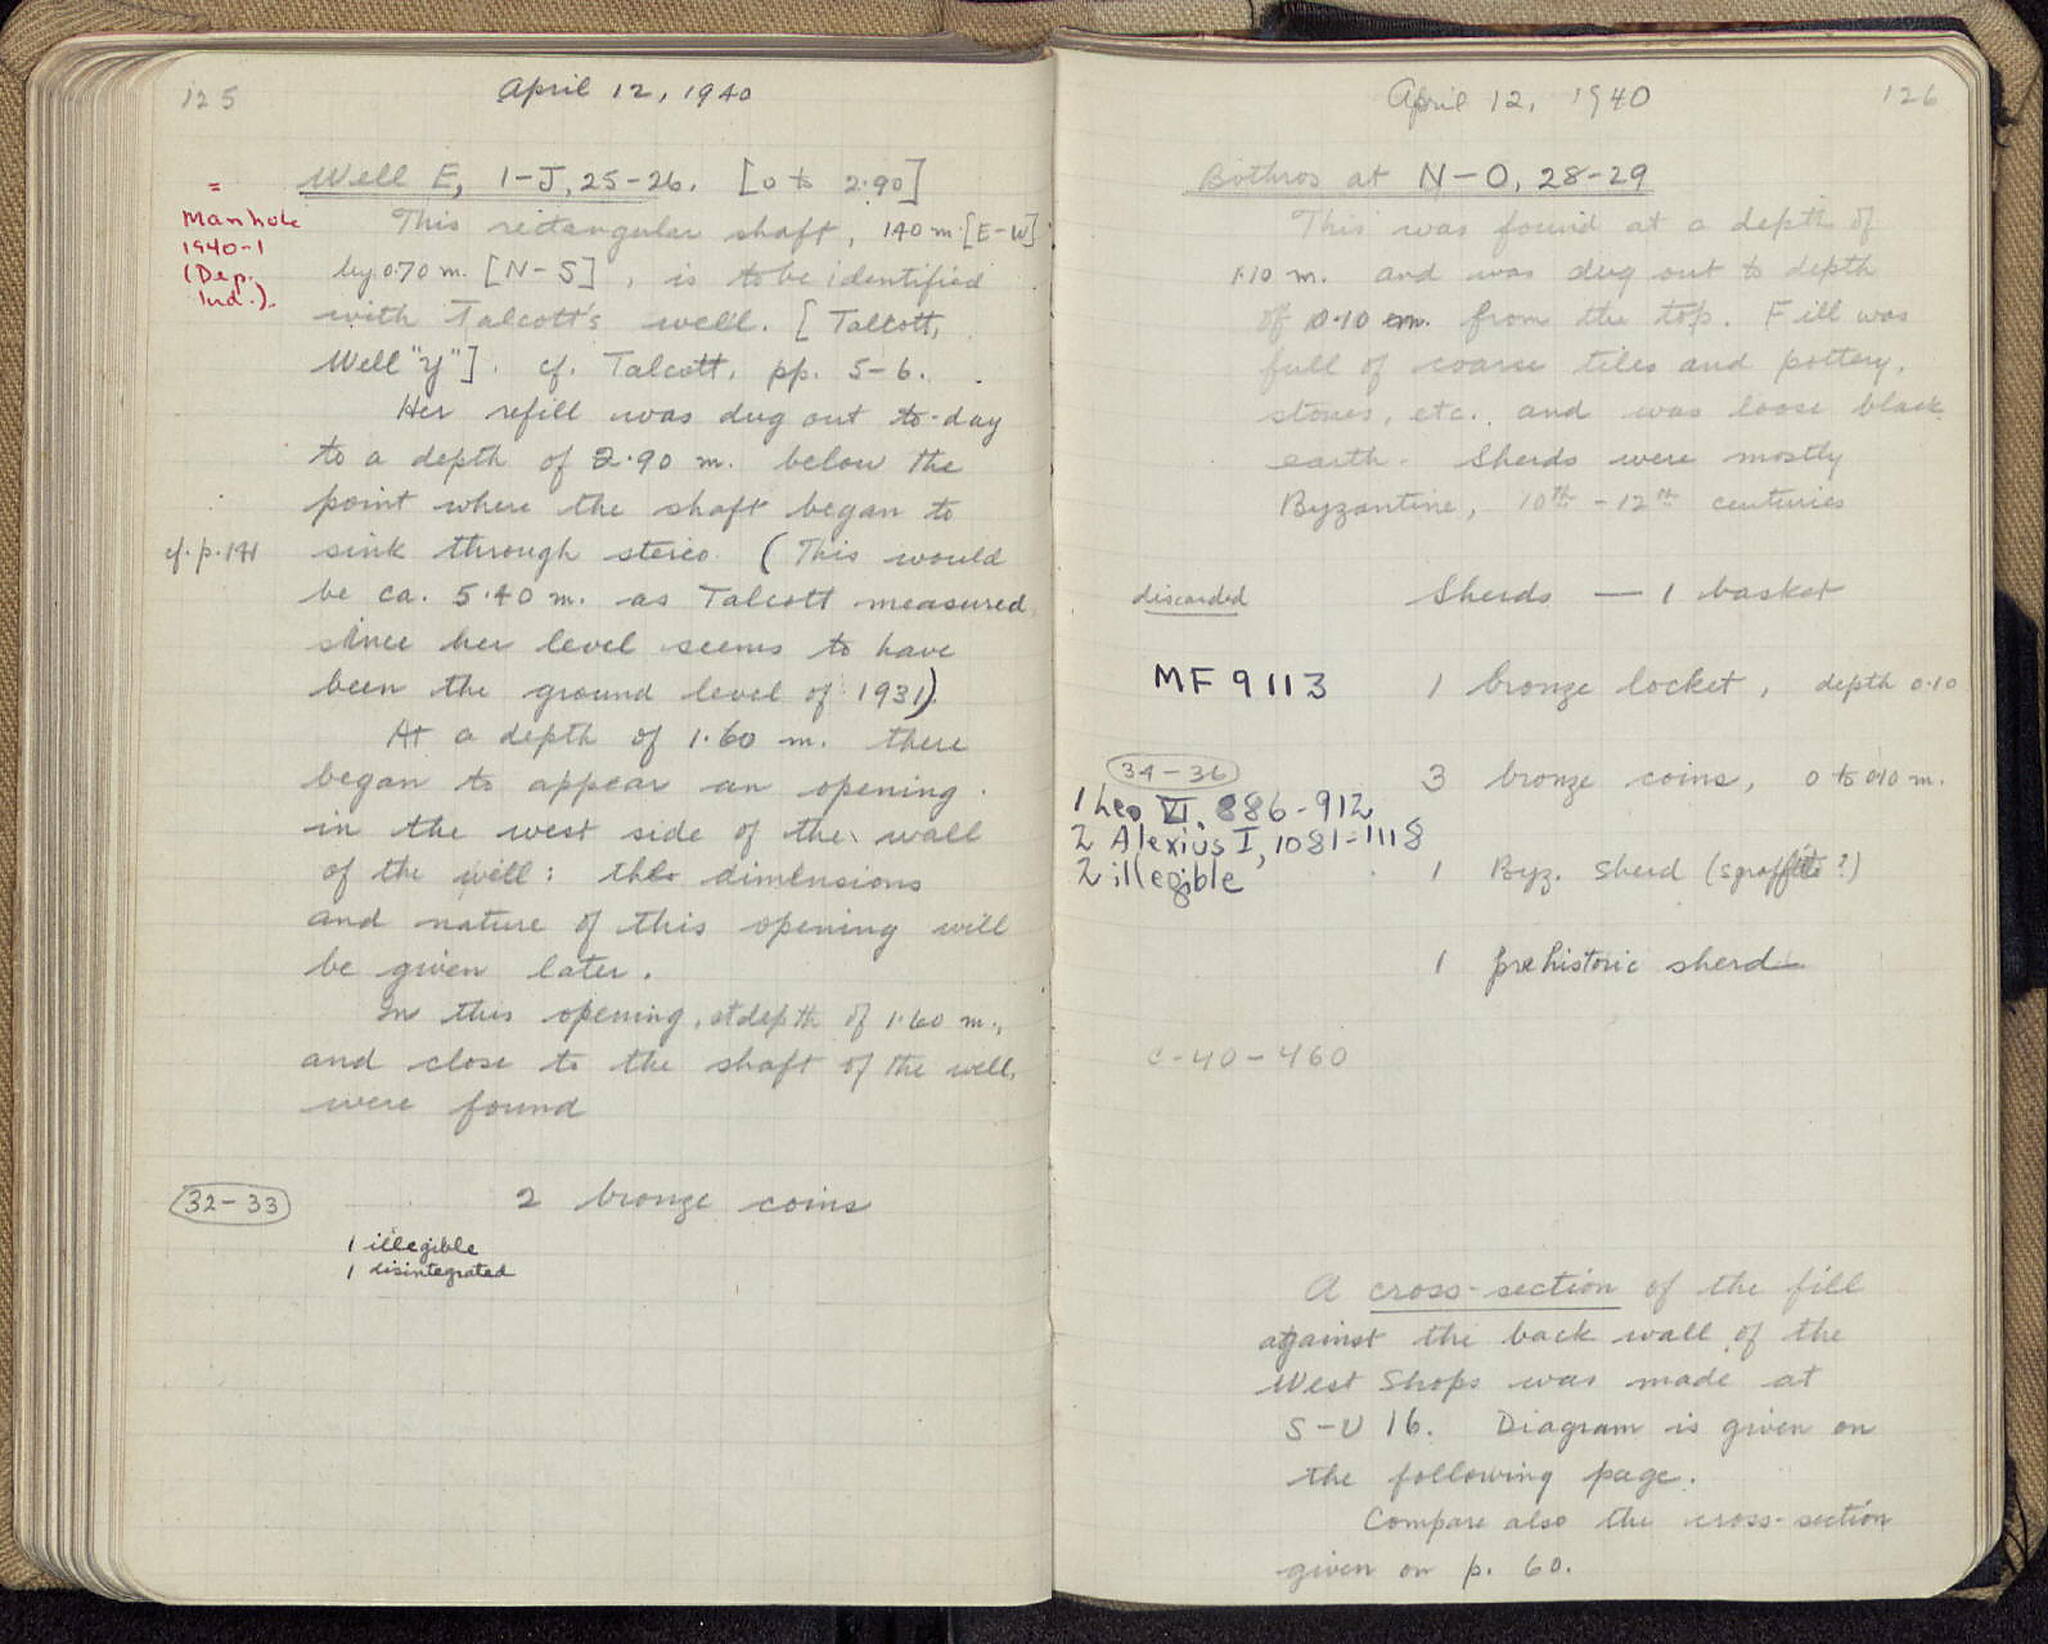 125
April 12, 1940
= Manhole
1940-1
(Dep.
Ind.).
Well E, I-J, 25-26. [0 to 2.90]
This rectangular shaft, 1.40 m. [E-W]
by 0.70 m. [N-S], is to be identified
with Talcott's well. [Talcott,
Well "Y"]. cf. Talcott, pp. 5-6.
Her refill was dug out to-day
to a depth of 2.90 m. below the
point where the shaft began to
cf. p. 141
sink through stereo. (This would
be ca. 5.40 m. as Talcott measured
since her level seems to have
been the ground level of 1931).
At a depth of 1.60 m. there
began to appear an opening
in the west side of the wall
of the well: the dimensions
and nature of this opening will
be given later.
In this opening, at depth of 1.60 m.,
and close to the shaft of the well,
were found
32-33
2 bronze coins
1 illegible
1 disintegrated
April 12, 1940
126
Bothros at N-O, 28-29
This was found at a depth of
1.10 m. and was dug out to depth
of 0.10 m. from the top. Fill was
full of coarse tiles and pottery,
stones, etc. and was loose black
earth. Sherds were mostly
Byzantine, 10th - 12th centuries
discarded
Sherds — 1 basket
MF 9113
1 bronze locket, depth 0.10
34-36
3 bronze coins, 0 to 0.10 m.
1 Leo VI, 886-912
2 Alexius I, 1081-1118
2 illegible
1 Byz. Sherd (sgraffito?)
1 prehistoric sherd
C-40-460
A cross-section of the fill
against the back wall of the
West Shops was made at
S-U 16. Diagram is given on
the following page.
Compare also the cross-section
given on p. 60.